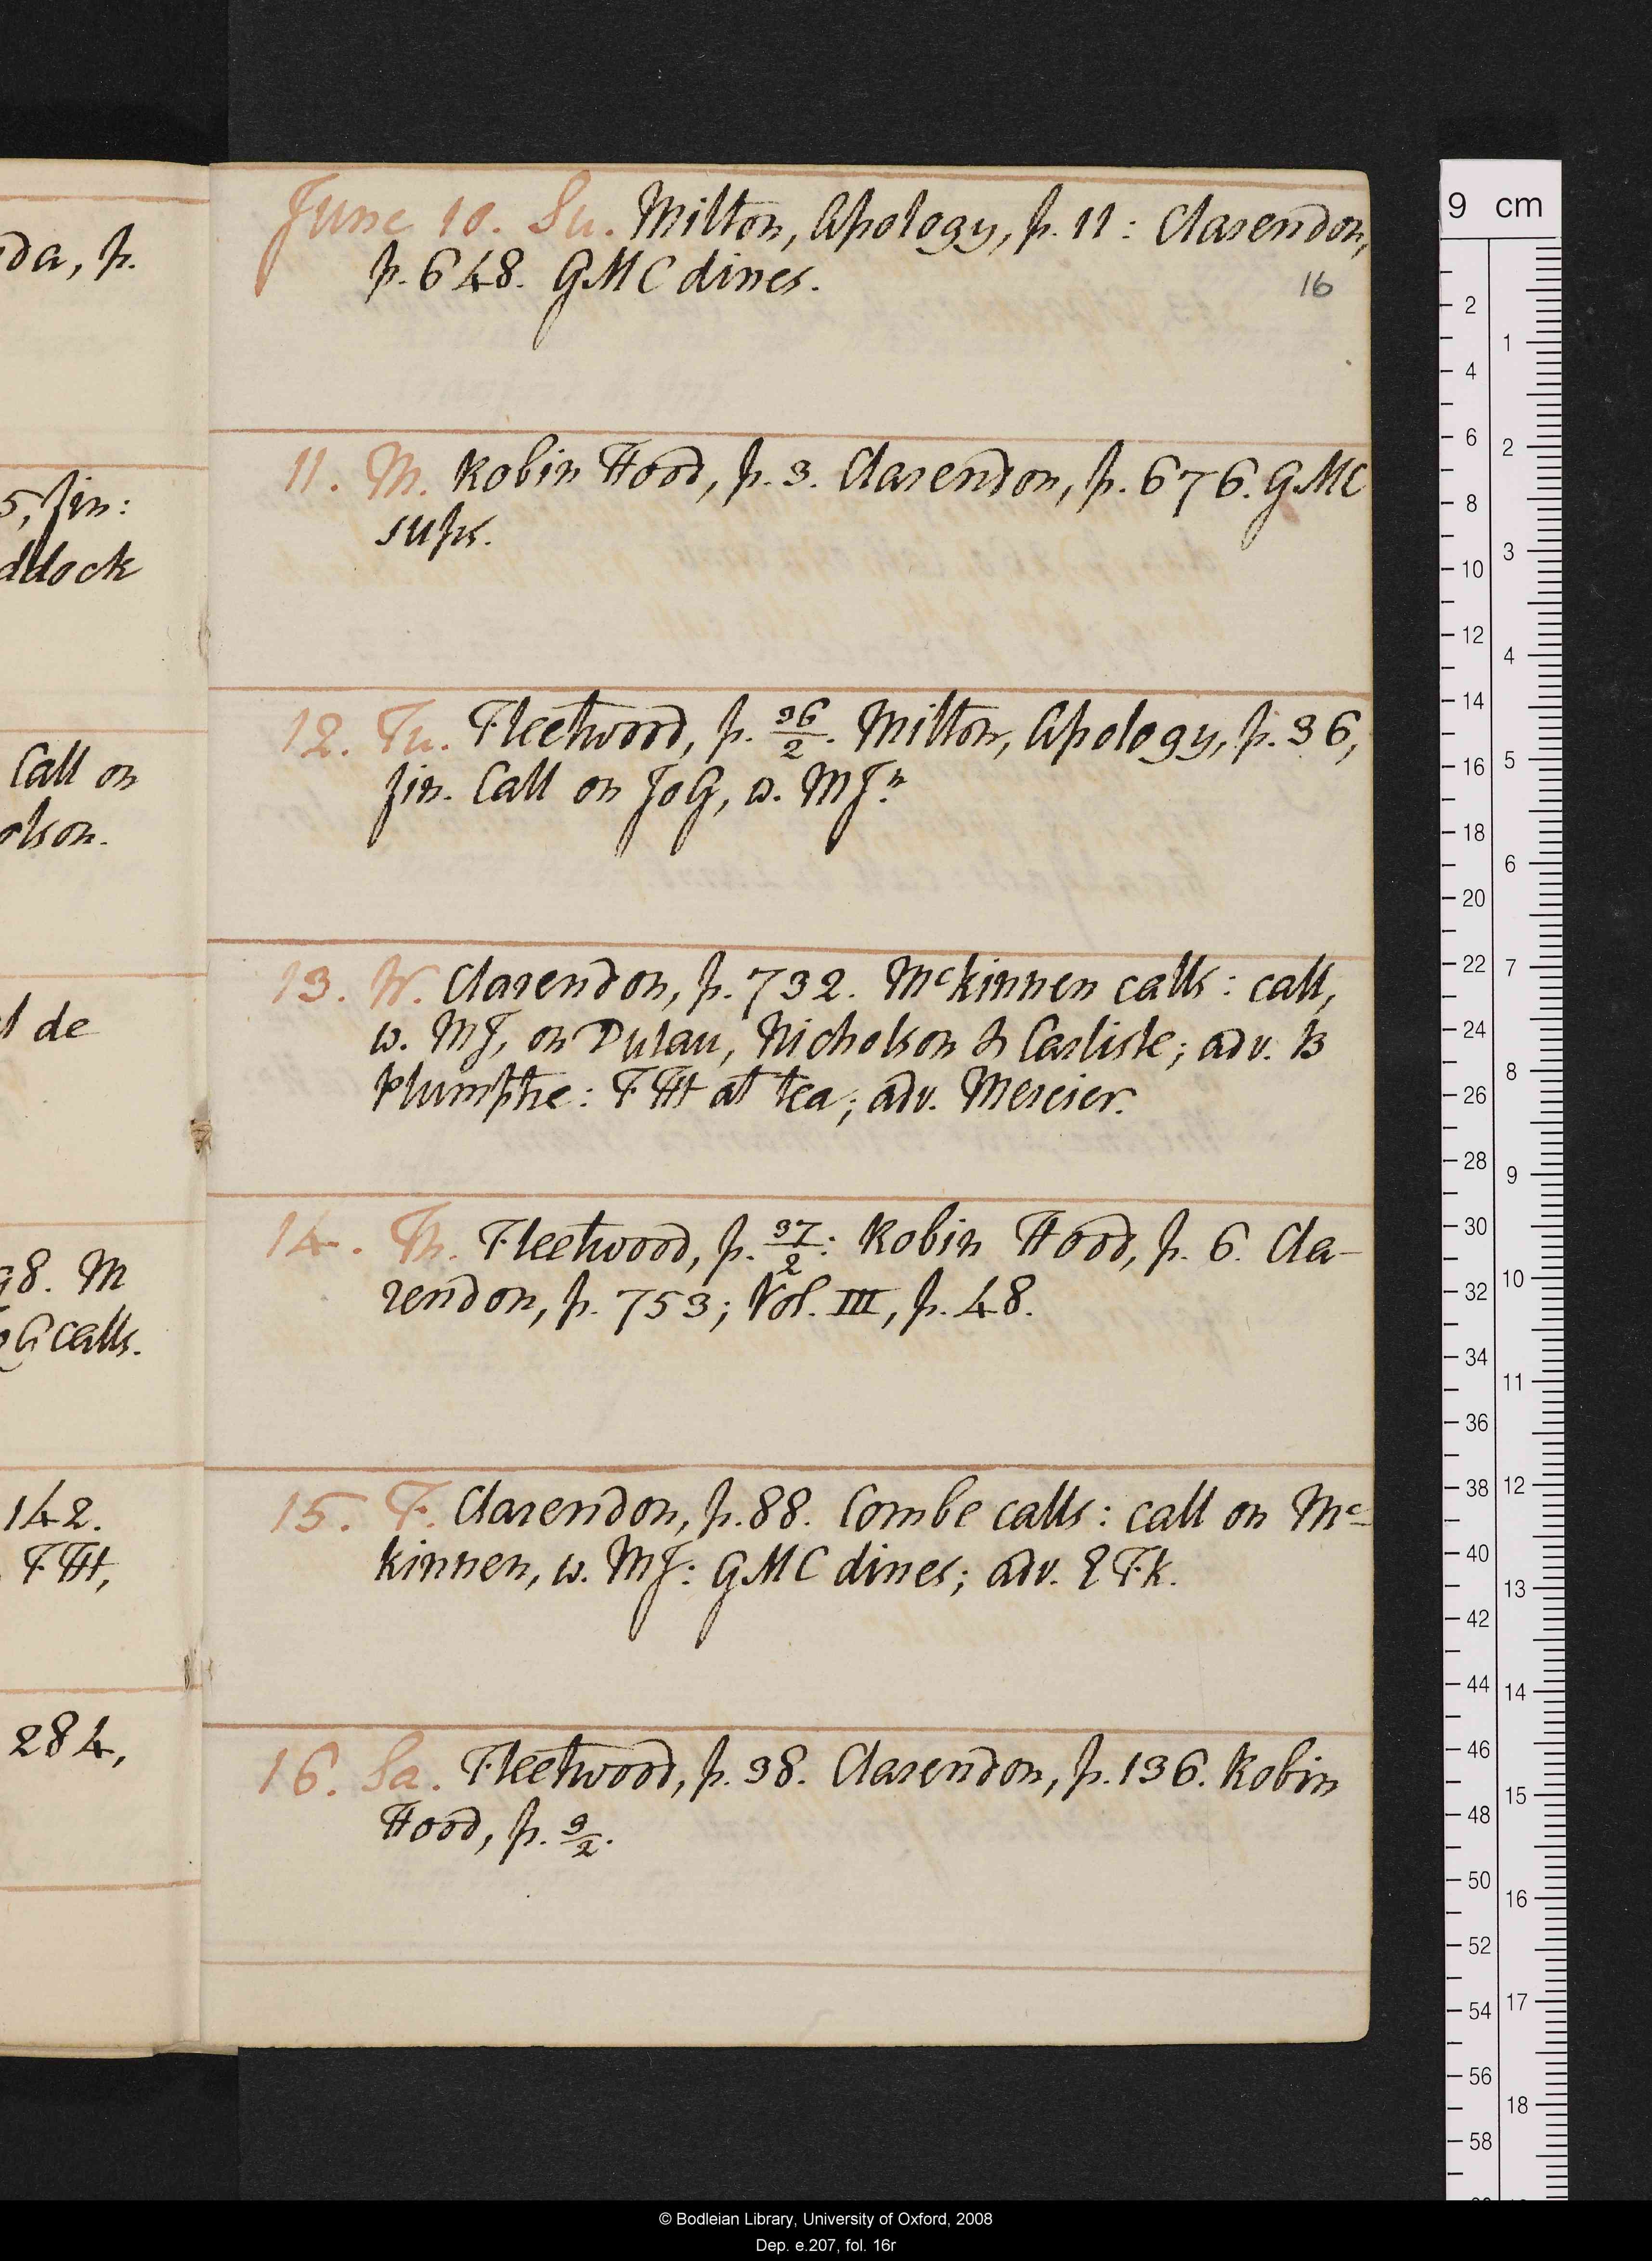 da, p.
5, fin:
ddock
Call on
olson.
l de
98. M
oG calls.
142.
FTH,
284,
June 10. Su. Milton, Apology, p. 11: Clarendon,
p. 648. GMC dines.
16
11. M. Robin Hood, p. 3. Clarendon, p. 676. GMC
sups.
12. Tu. Fleetwood, p. 36/2. Milton, Apology, p. 36,
fin. Call on JoG, w. MJn
13. W. Clarendon, p. 732. McKinnen calls: call,
w. MJ, on Dulau, Nicholson & Carlisle; adv. B
Plumptre: FTH at tea; adv. Mercier.
14. Th. Fleetwood, p. 37/2: Robin Hood, p. 6. Cla-
rendon, p. 753; Vol. III, p. 48.
15. F. Clarendon, p. 88. Combe calls: call on Mc-
kinnen, w. MJ: GMC dines; adv. E Fk.
16. Sa. Fleetwood, p. 38. Clarendon, p. 136. Robin
Hood, p. 9/2.
9 cm
2
4
6
8
10
12
14
16
18
20
22
24
26
28
30
32
34
36
38
40
42
44
46
48
50
52
54
56
58
1
2
3
4
5
6
7
8
9
10
11
12
13
14
15
16
17
18
© Bodleian Library, University of Oxford, 2008
Dep. e.207, fol. 16r